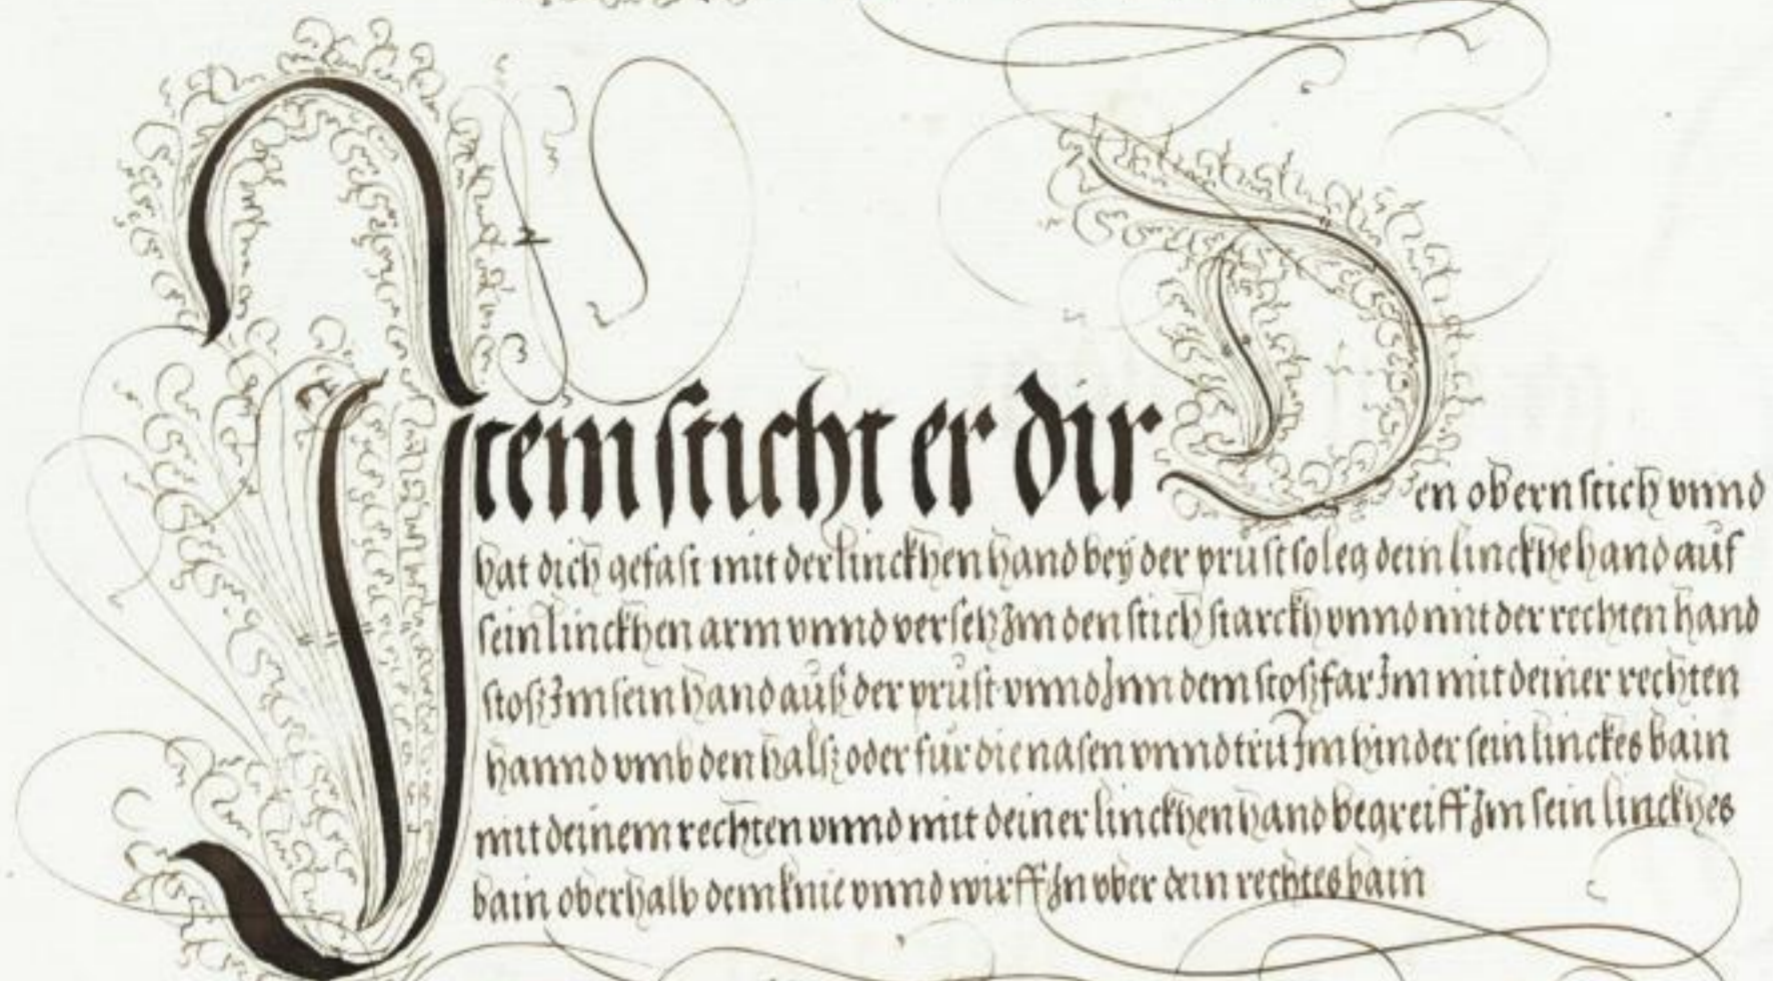 Item sticht er dir Den obern stich vnnd
hat dich gefast mit der linckhen hand bey der prust so leg dein linckhe hand auf
sein linckhen arm vnnd versetz Im den stich starckh vnnd mit der rechten hand
stosz Im sein hand ausz der prust vnnd Inn dem stosz far Im mit deiner rechten
hannd vmb den halsz oder für die nasen vnnd trit Im hinder sein linckes bain
mit deinem rechten vnnd mit deiner linckhen hand begreiff Im sein linckhes
bain oberhalb dem knie vnnd wirff In vber dein rechtes bain